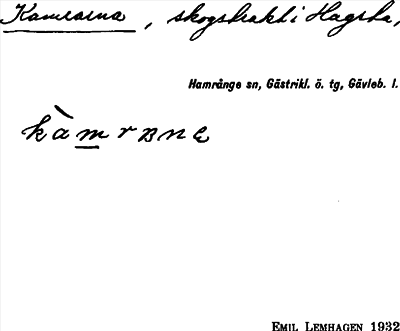 Kamrarna, skogstrakt i Hagsta,
Hamrånge sn, Gästrikl. ö. tg, Gävleb. l.
kàmrane
EMIL LEMHAGEN 1932